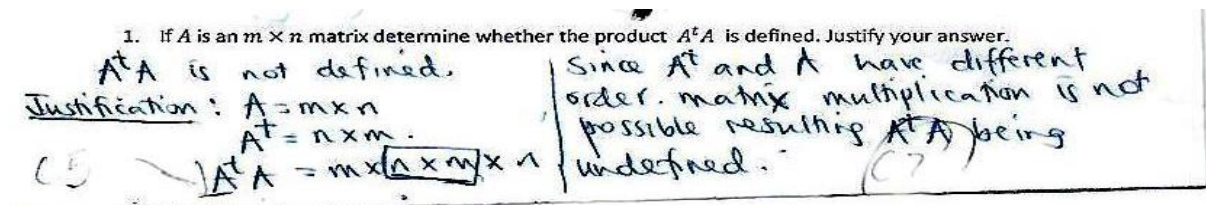 1. If A is an m × n matrix determine whether the product AᵗA is defined. Justify your answer.
AᵗA is not defined.
Justification : A = m×n
Aᵗ = n×m.
AᵗA = m×n×m×n
Since Aᵗ and A have different
order. matrix multiplication is not
possible resulting AᵗA being
undefined.